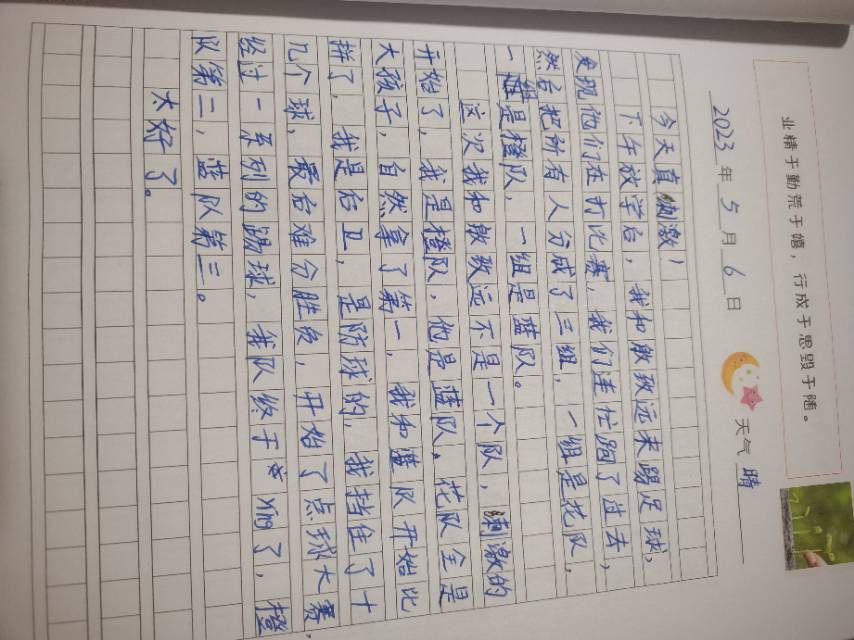 业精于勤荒于嬉，行成于思毁于随。
2023年5月6日 天气 晴
今天真刺激！
下午放学后，我和敖致远来踢足球，
发现他们在打比赛，我们连忙跑了过去，
然后把所有人分成了三组，一组是花队，
一组是橙队，一组是蓝队。
这次我和敖致远不是一个队，刺激的
开始了，我是橙队，他是蓝队，花队全是
大孩子，自然拿了第一，我和蓝队开始比
拼了，我是后卫，是防球的，我挡住了十
几个球，最后难分胜负，开始了点球大赛，
经过一系列的踢球，我队终于yíng了，橙
队第二，蓝队第三。
太好了。